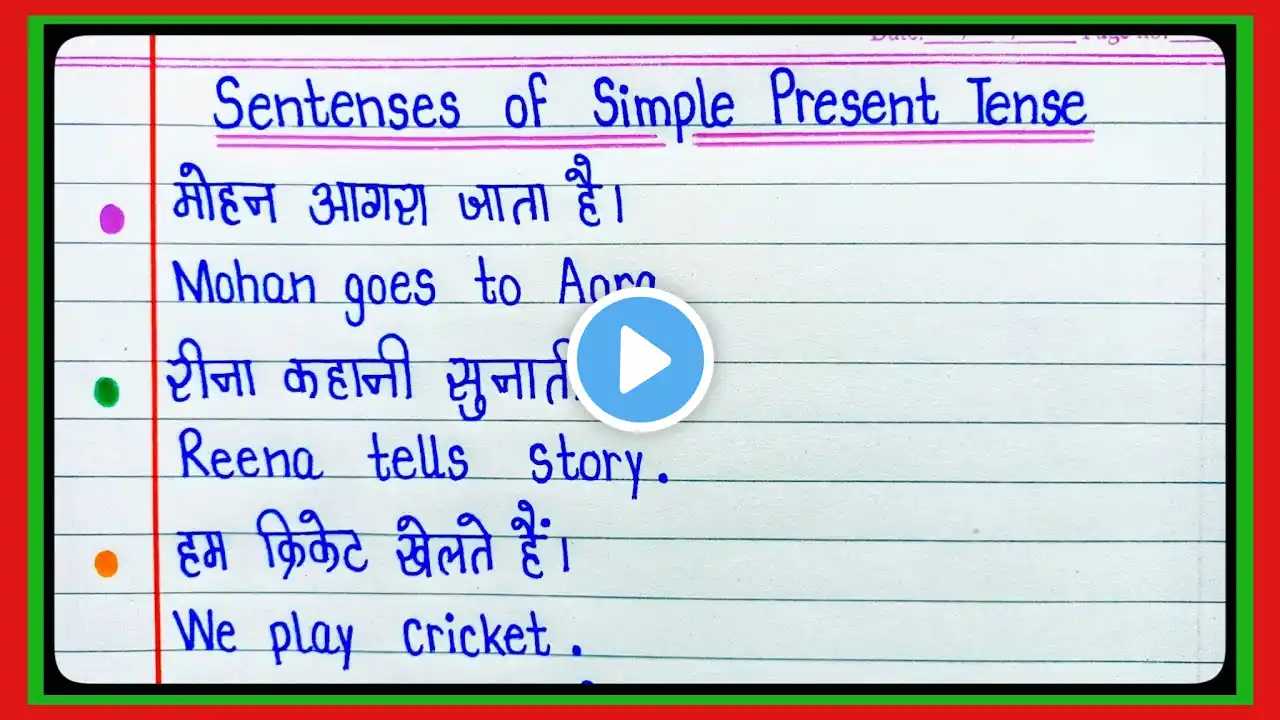 Sentenses of Simple Present Tense
मोहन आगरा जाता है।
Mohan goes to
रीना कहानी
Reena tells story.
हम क्रिकेट खेलते हैं।
We play cricket.